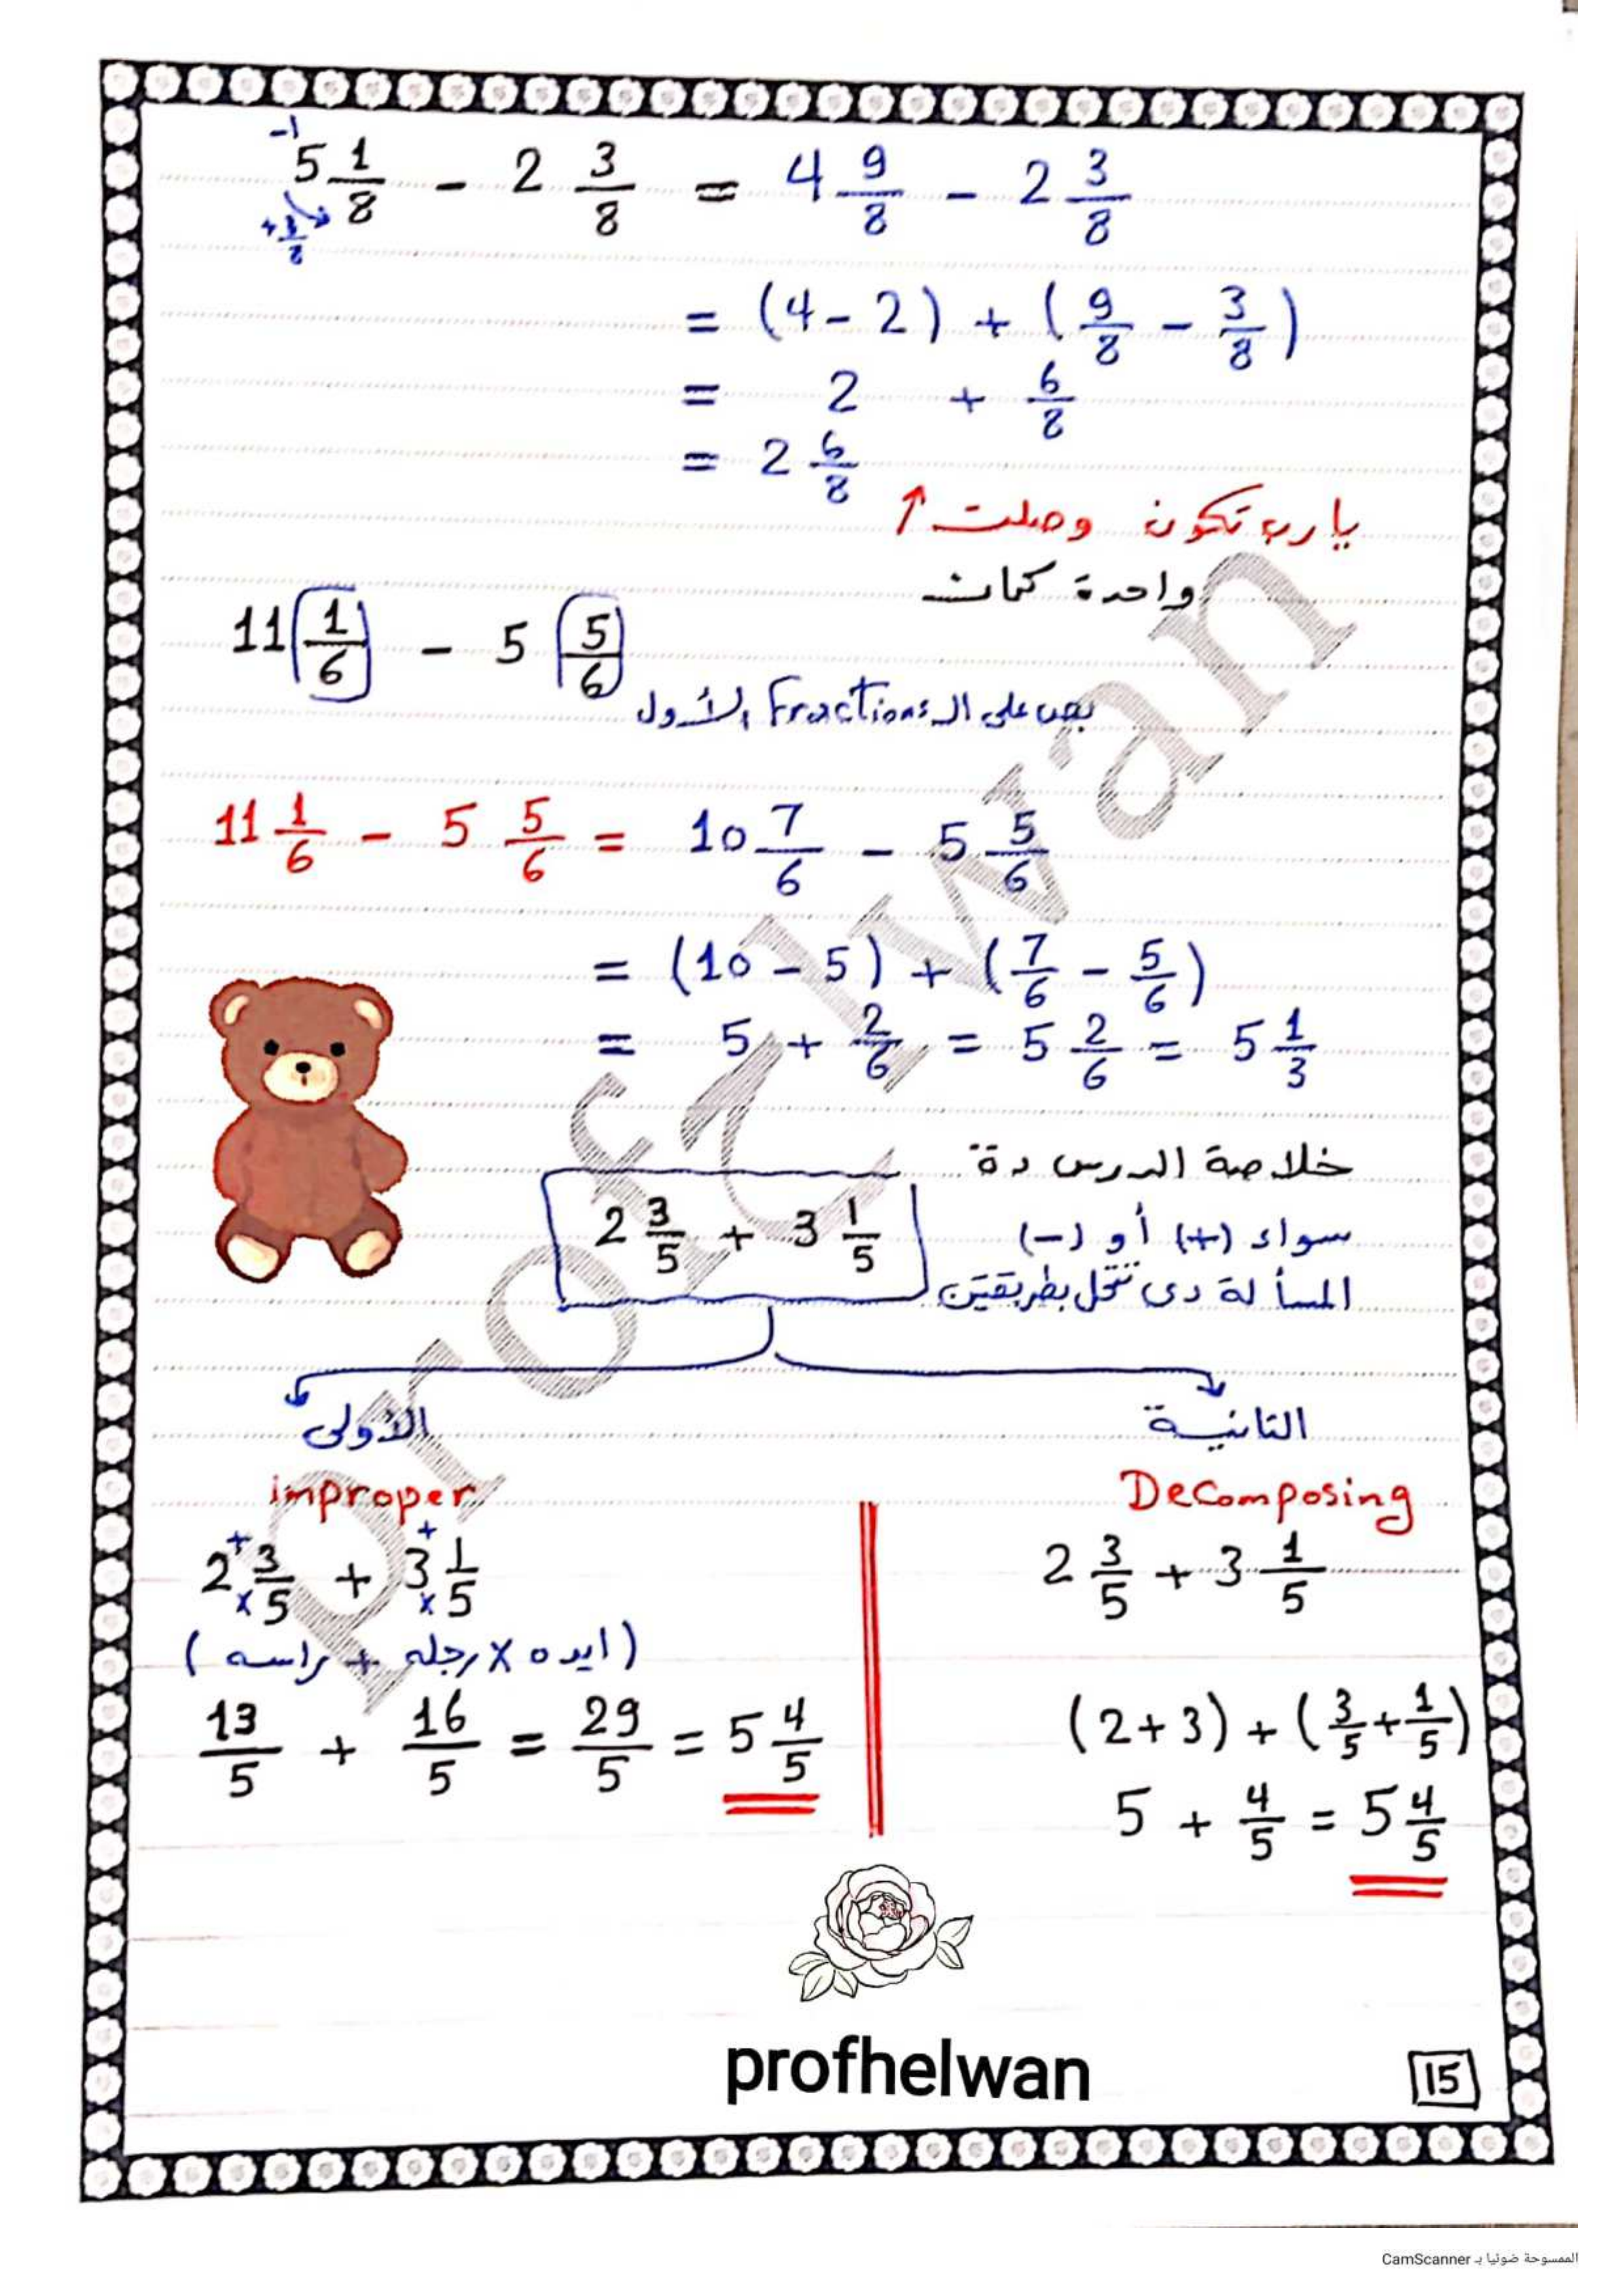 -1
5 1/8 - 2 3/8 = 4 9/8 - 2 3/8
= (4 - 2) + (9/8 - 3/8)
= 2 + 6/8
= 2 6/8
يارب تكون وصلت ↑
واحدة كمان
11 1/6 - 5 5/6
بص على الـ Fractions الأول
11 1/6 - 5 5/6 = 10 7/6 - 5 5/6
= (10 - 5) + (7/6 - 5/6)
= 5 + 2/6 = 5 2/6 = 5 1/3
خلاصة الدرس دة
سواء (+) أو (-)
2 3/5 + 3 1/5
المسألة دى تتحل بطريقتين
الأولى
improper
2 3/5 + 3 1/5
(ايده × رجله + راسه)
13/5 + 16/5 = 29/5 = 5 4/5
الثانية
Decomposing
2 3/5 + 3 1/5
(2+3) + (3/5 + 1/5)
5 + 4/5 = 5 4/5
profhelwan
15
Prof Helwan
الممسوحة ضوئيا بـ CamScanner